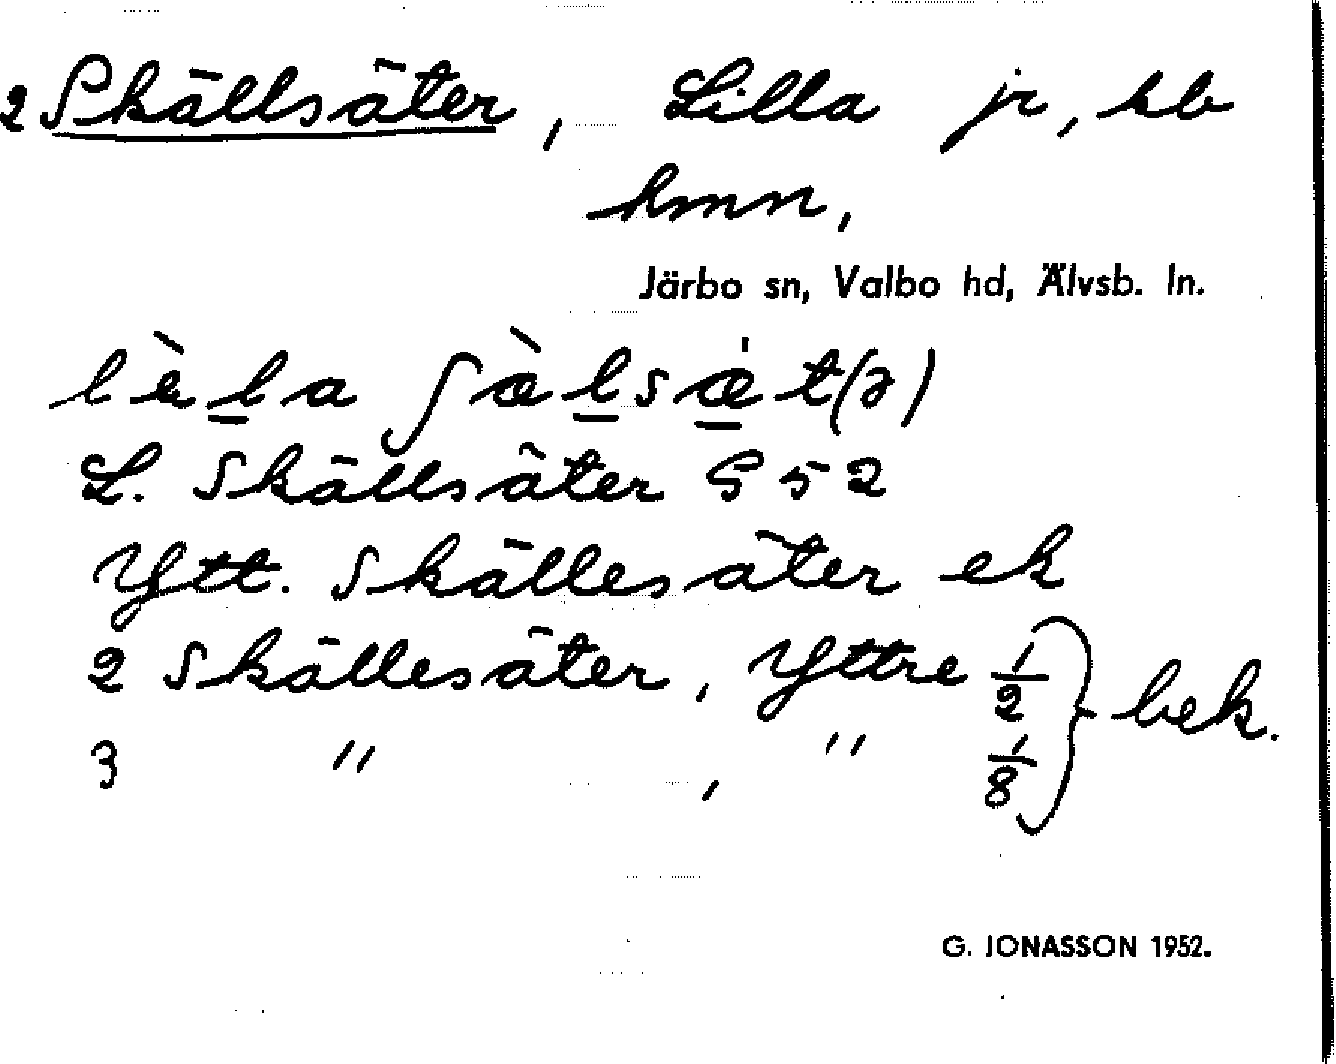 2 Skällsäter, Lilla jr, hb
hmn,
Järbo sn, Valbo hd, Älvsb. ln.
lèla ʃæ̀lsæ̍t(ə)
L. Skällsäter G 52
Ytt. Skällesäter ek
2 Skällesäter, Yttre 1/2 } bek.
3 " , " 1/8
G. JONASSON 1952.